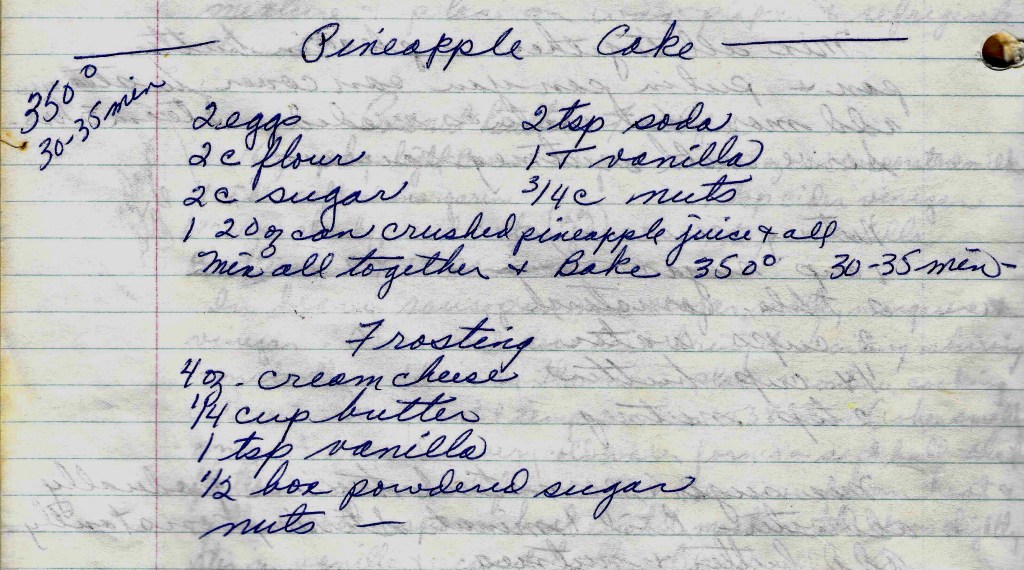 Pineapple Cake
350°
30-35 min
2 eggs 2 tsp soda
2c flour 1 T vanilla
2c sugar 3/4c nuts
1 20 oz can crushed pineapple juice & all
Mix all together & Bake 350° 30-35 min-
Frosting
4 oz. cream cheese
1/4 cup butter
1 tsp vanilla
1/2 box powdered sugar
nuts —